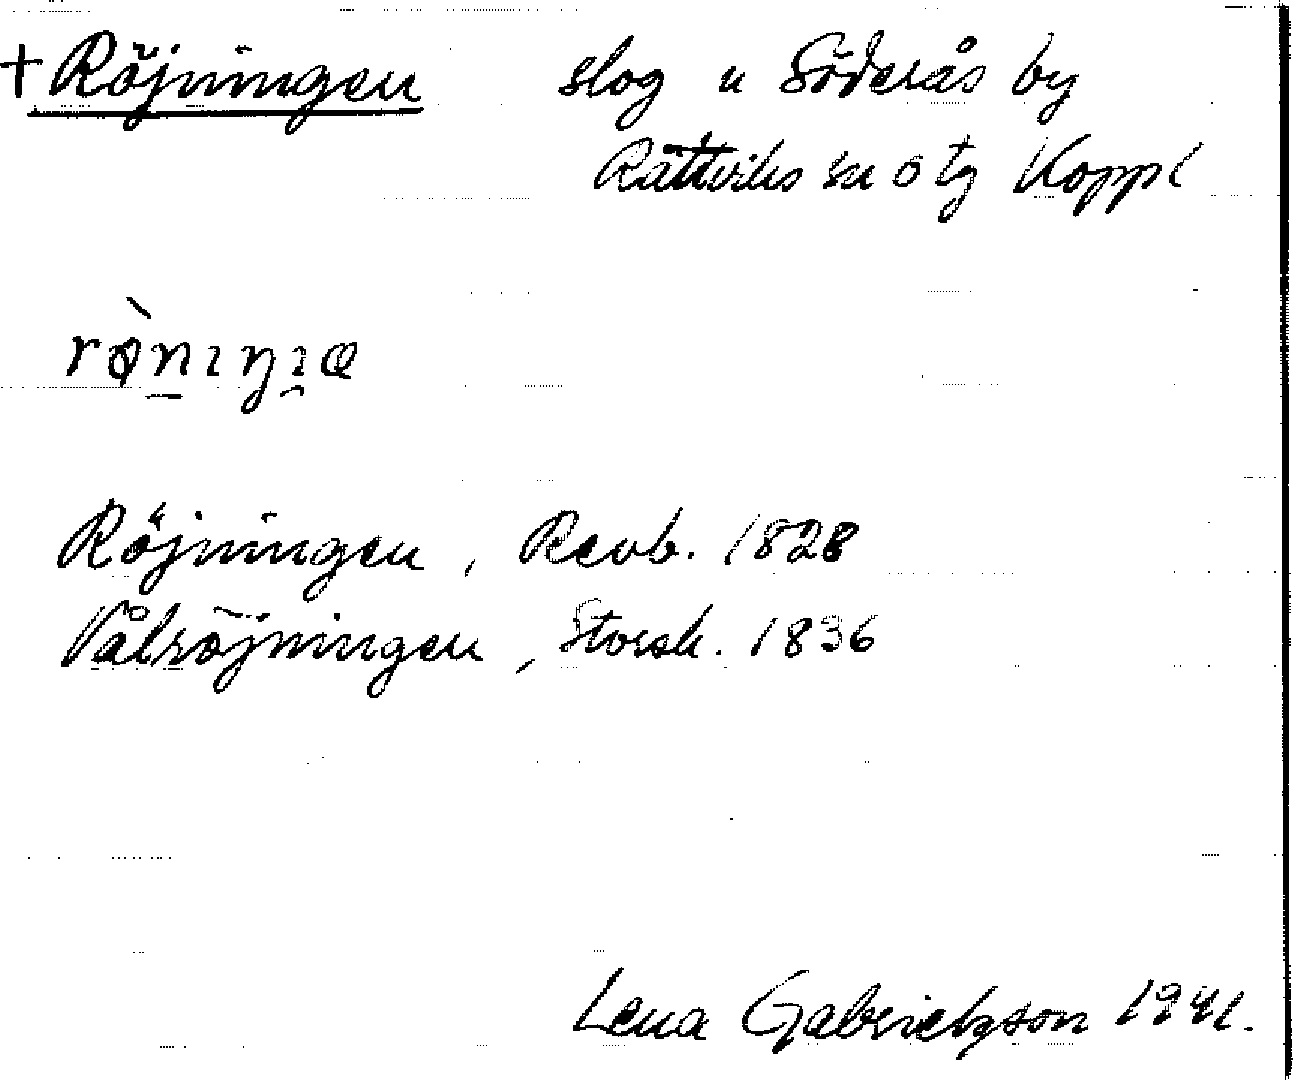 + Röjningen slog u Söderås by
Rättviks sn o tg Koppl
Röjningen, Revb. 1828
Vålröjningen, Storsk. 1836
Lena Gabrielsson 1941.